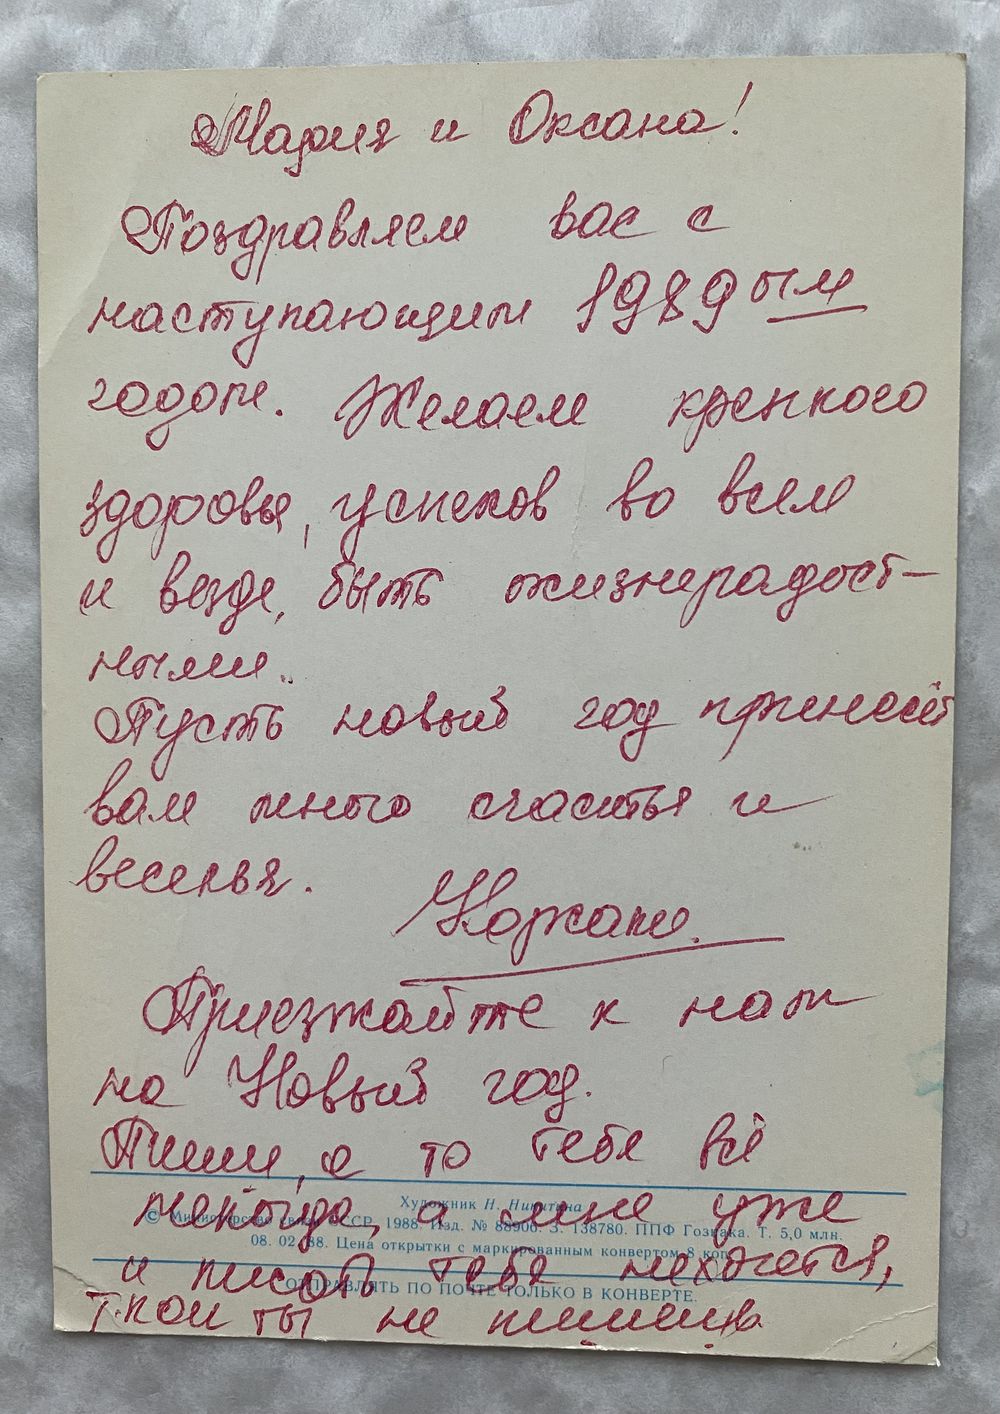 Мария и Оксана!
Поздравляем вас с
наступающим 1989 ым
годом. Желаем крепкого
здоровья, успехов во всем
и везде, быть жизнерадост-
ными.
Пусть новый год принесёт
вам много счастья и
веселья.
Приезжайте к нам
на Новый год.
Пиши, а то тебе всё
Художник Н. Никитина
а мне уже
© Министерство связи СССР, 1988. Изд. № 88900. З. 138780. ППФ Гознака. Т. 5,0 млн.
08. 02. 88. Цена открытки с маркированным конвертом 8 коп.
и писать тебе нехочется,
ОТПРАВЛЯТЬ ПО ПОЧТЕ ТОЛЬКО В КОНВЕРТЕ.
ты не пишешь